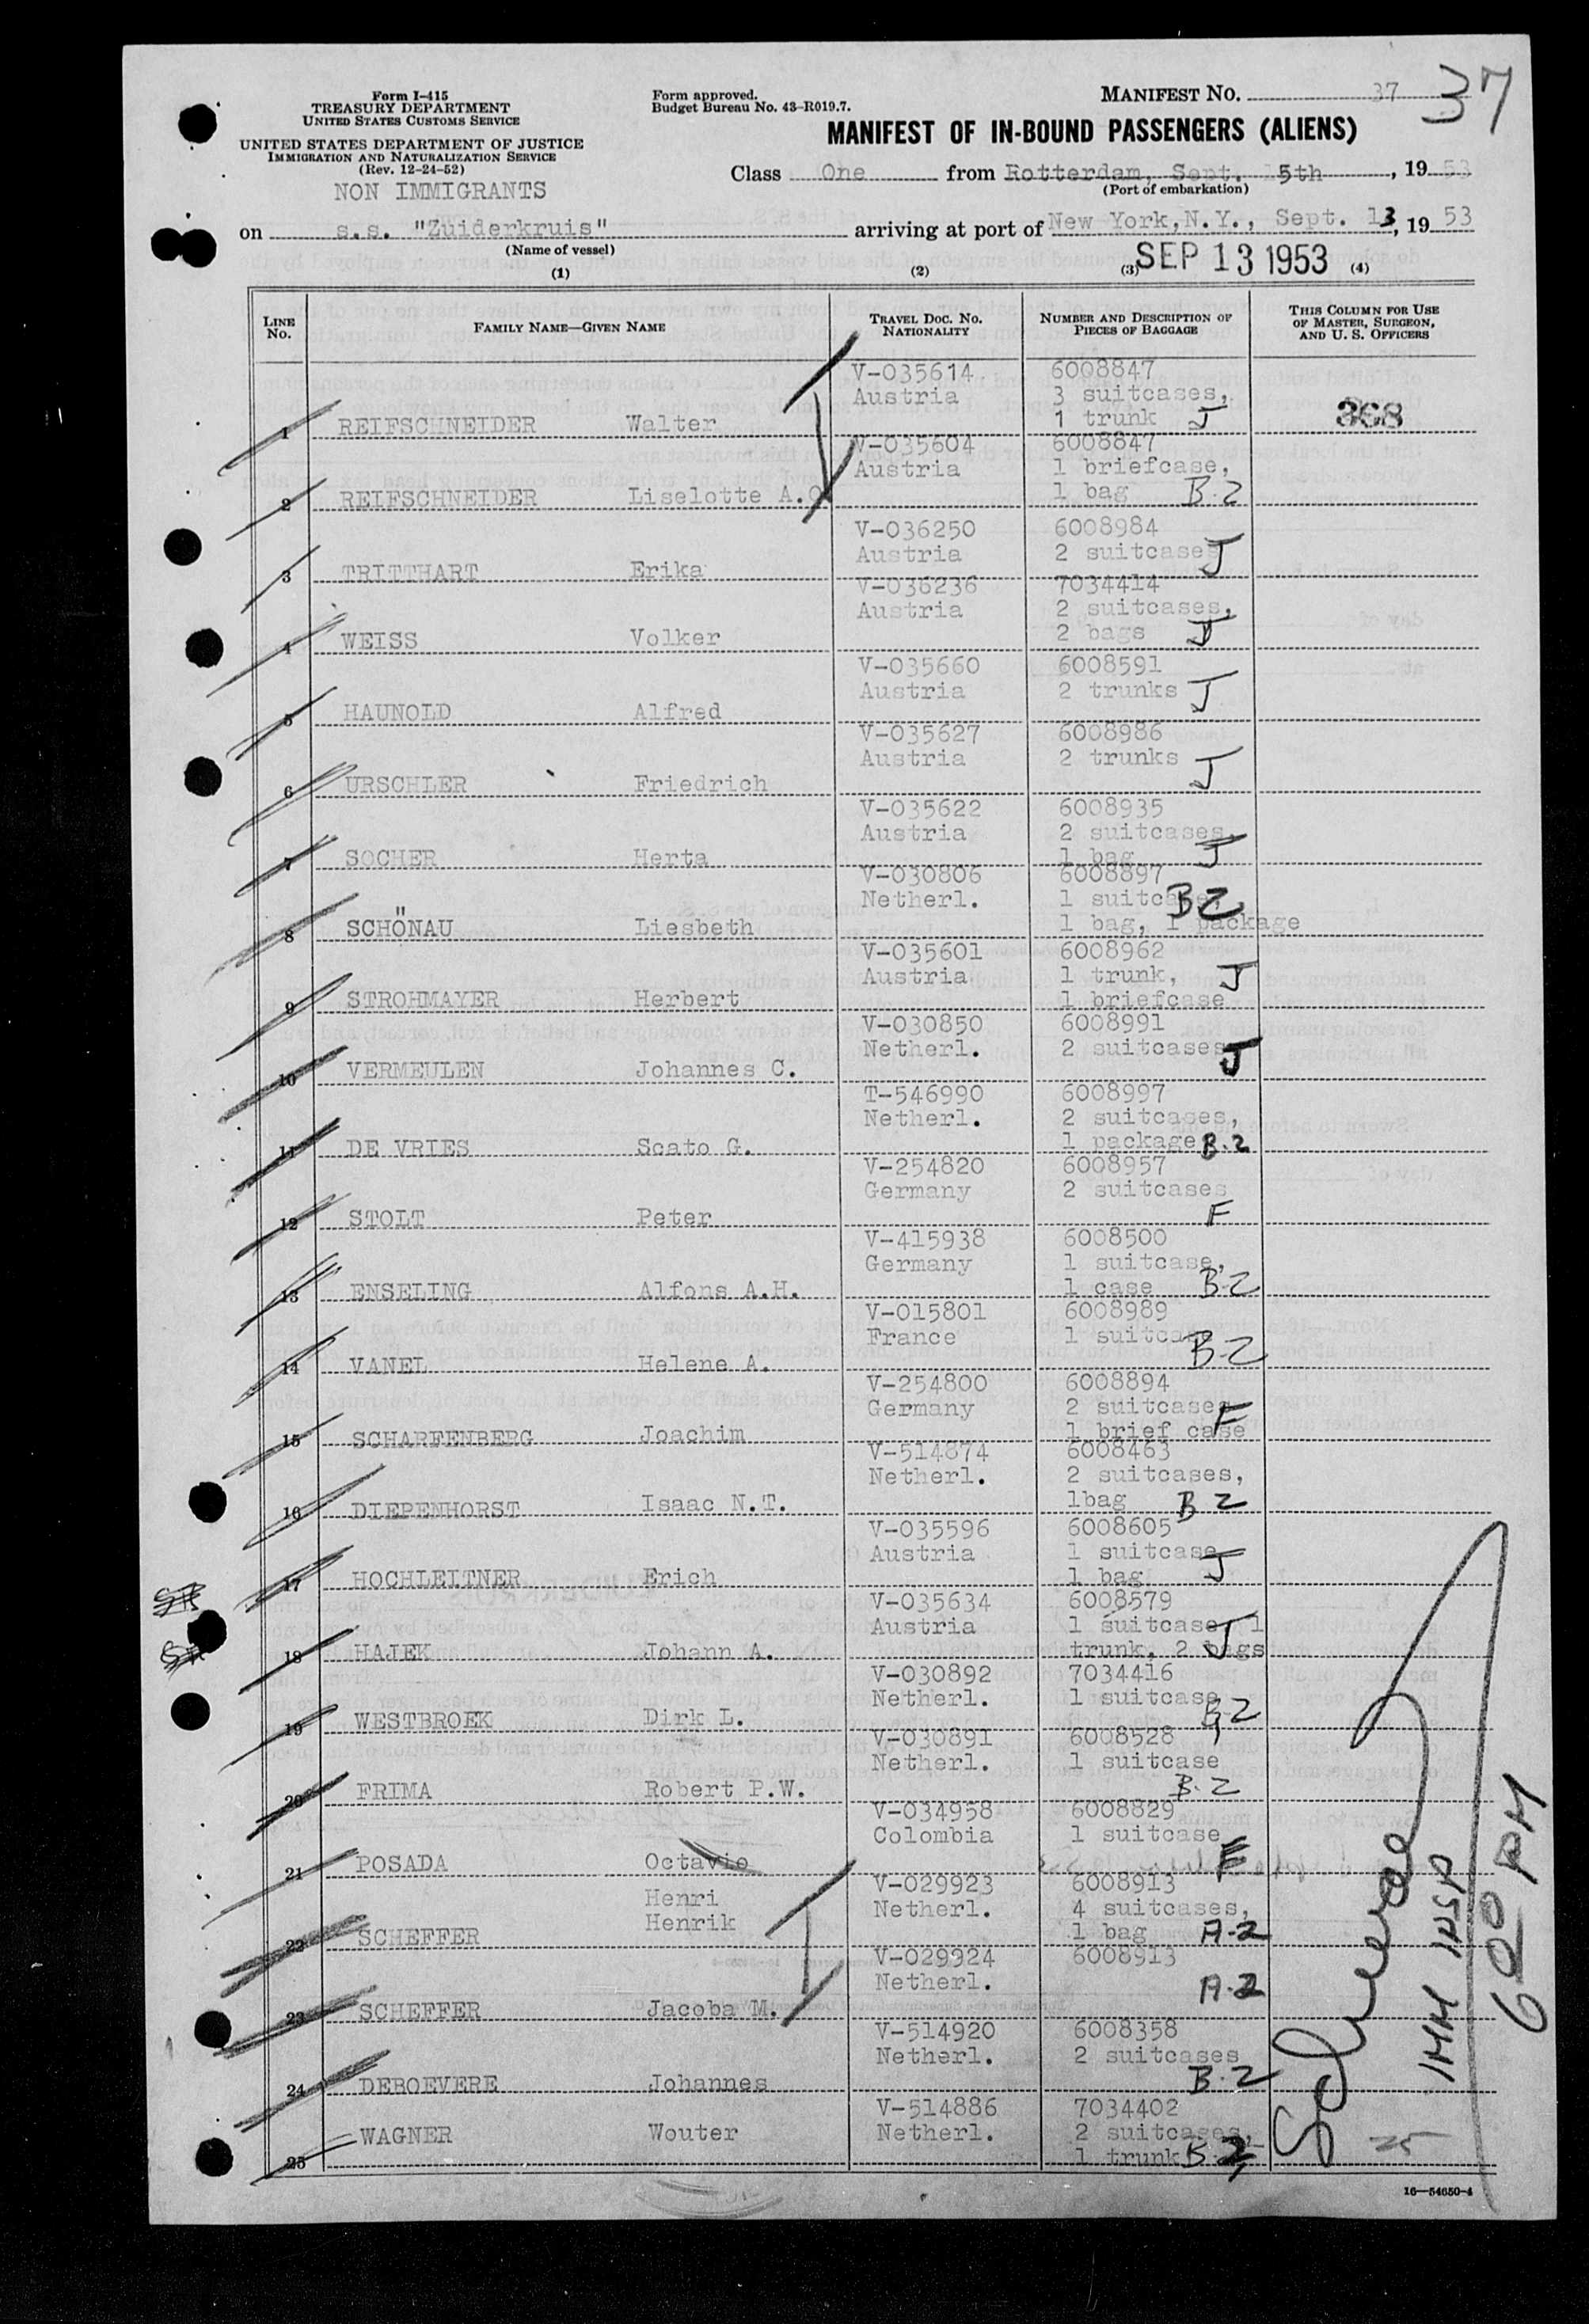 Form I-415
TREASURY DEPARTMENT
UNITED STATES CUSTOMS SERVICE
UNITED STATES DEPARTMENT OF JUSTICE
IMMIGRATION AND NATURALIZATION SERVICE
(Rev. 12-24-52)
NON IMMIGRANTS
Form approved.
Budget Bureau No. 43-R019.7.
MANIFEST NO. 37 37
MANIFEST OF IN-BOUND PASSENGERS (ALIENS)
Class One from Rotterdam, Sept. 5th, 19 53
(Port of embarkation)
on s.s. "Zuiderkruis" arriving at port of New York, N.Y., Sept. 13, 19 53
(Name of vessel)
SEP 13 1953
(1) (2) (3) (4)
LINE NO. FAMILY NAME—GIVEN NAME TRAVEL DOC. NO. NATIONALITY NUMBER AND DESCRIPTION OF PIECES OF BAGGAGE THIS COLUMN FOR USE OF MASTER, SURGEON, AND U. S. OFFICERS
1 REIFSCHNEIDER Walter V-035614 Austria 6008847 3 suitcases, 1 trunk J 368
2 REIFSCHNEIDER Liselotte A.O. V-035604 Austria 6008847 1 briefcase, 1 bag B-2
3 TRITTHART Erika V-036250 Austria 6008984 2 suitcases J
4 WEISS Volker V-036236 Austria 7034414 2 suitcases, 2 bags J
5 HAUNOLD Alfred V-035660 Austria 6008591 2 trunks J
6 URSCHLER Friedrich V-035627 Austria 6008986 2 trunks J
7 SOCHER Herta V-035622 Austria 6008935 2 suitcases, 1 bag J
8 SCHÖNAU Liesbeth V-030806 Netherl. 6008897 1 suitcase, 1 bag, 1 package B2
9 STROHMAYER Herbert V-035601 Austria 6008962 1 trunk, 1 briefcase J
10 VERMEULEN Johannes C. V-030850 Netherl. 6008991 2 suitcases J
11 DE VRIES Scato G. T-546990 Netherl. 6008997 2 suitcases, 1 package B-2
12 STOLT Peter V-254820 Germany 6008957 2 suitcases F
13 ENSELING Alfons A.H. V-415938 Germany 6008500 1 suitcase, 1 case B-2
14 VANEL Helene A. V-015801 France 6008989 1 suitcase B-2
15 SCHARFENBERG Joachim V-254800 Germany 6008894 2 suitcases 1 brief case F
16 DIEPENHORST Isaac N.T. V-514874 Netherl. 6008463 2 suitcases, 1bag B 2
17 HOCHLEITNER Erich V-035596 Austria 6008605 1 suitcase 1 bag J
18 HAJEK Johann A. V-035634 Austria 6008579 1 suitcase, 1 trunk, 2 bags J
19 WESTBROEK Dirk L. V-030892 Netherl. 7034416 1 suitcase B-2
20 FRIMA Robert P.W. V-030891 Netherl. 6008528 1 suitcase B-2
21 POSADA Octavio V-034958 Colombia 6008829 1 suitcase F
22 SCHEFFER Henri Henrik V-029923 Netherl. 6008913 4 suitcases, 1 bag A-2
23 SCHEFFER Jacoba M. V-029924 Netherl. 6008913 A-2
24 DEBOEVERE Johannes V-514920 Netherl. 6008358 2 suitcases B-2
25 WAGNER Wouter V-514886 Netherl. 7034402 2 suitcases, 1 trunk B-2
IMM INSP
600 PM
25
16—54650-4